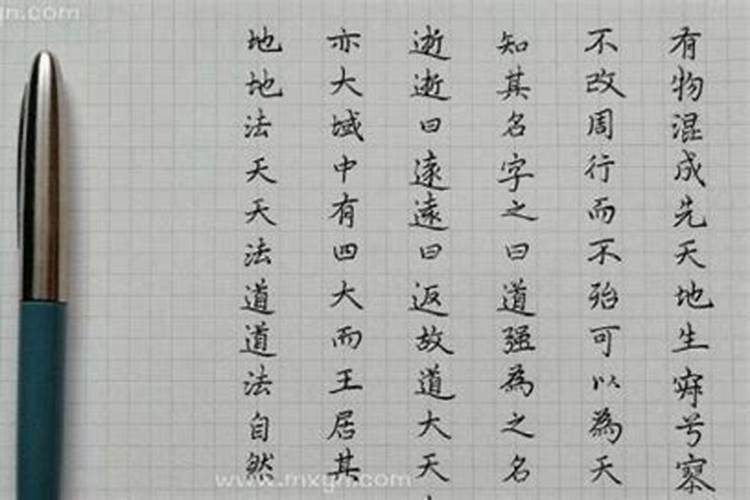 有物混成先天地生寂兮寥
不改周行而不殆可以為天
知其名字之曰道强為之名
逝逝曰遠遠曰返故道大天
亦大域中有四大而王居其
地地法天天法道道法自然
www.mxyn.com